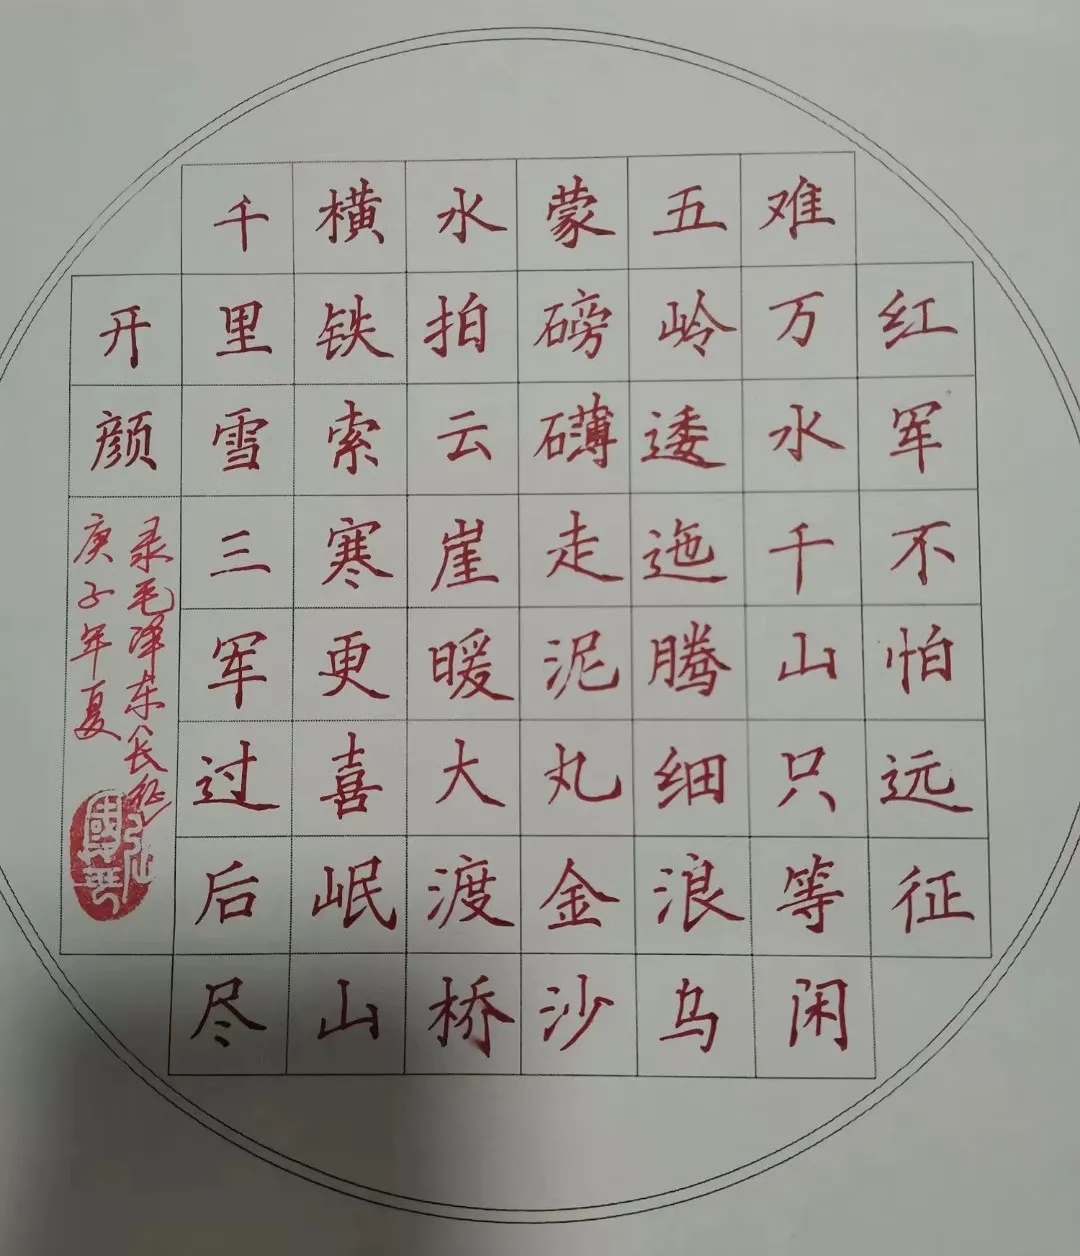 红军不怕远征
难万水千山只等闲
五岭逶迤腾细浪乌
蒙磅礴走泥丸金沙
水拍云崖暖大渡桥
横铁索寒更喜岷山
千里雪三军过后尽
开颜
录毛泽东〈长征〉
庚子年夏